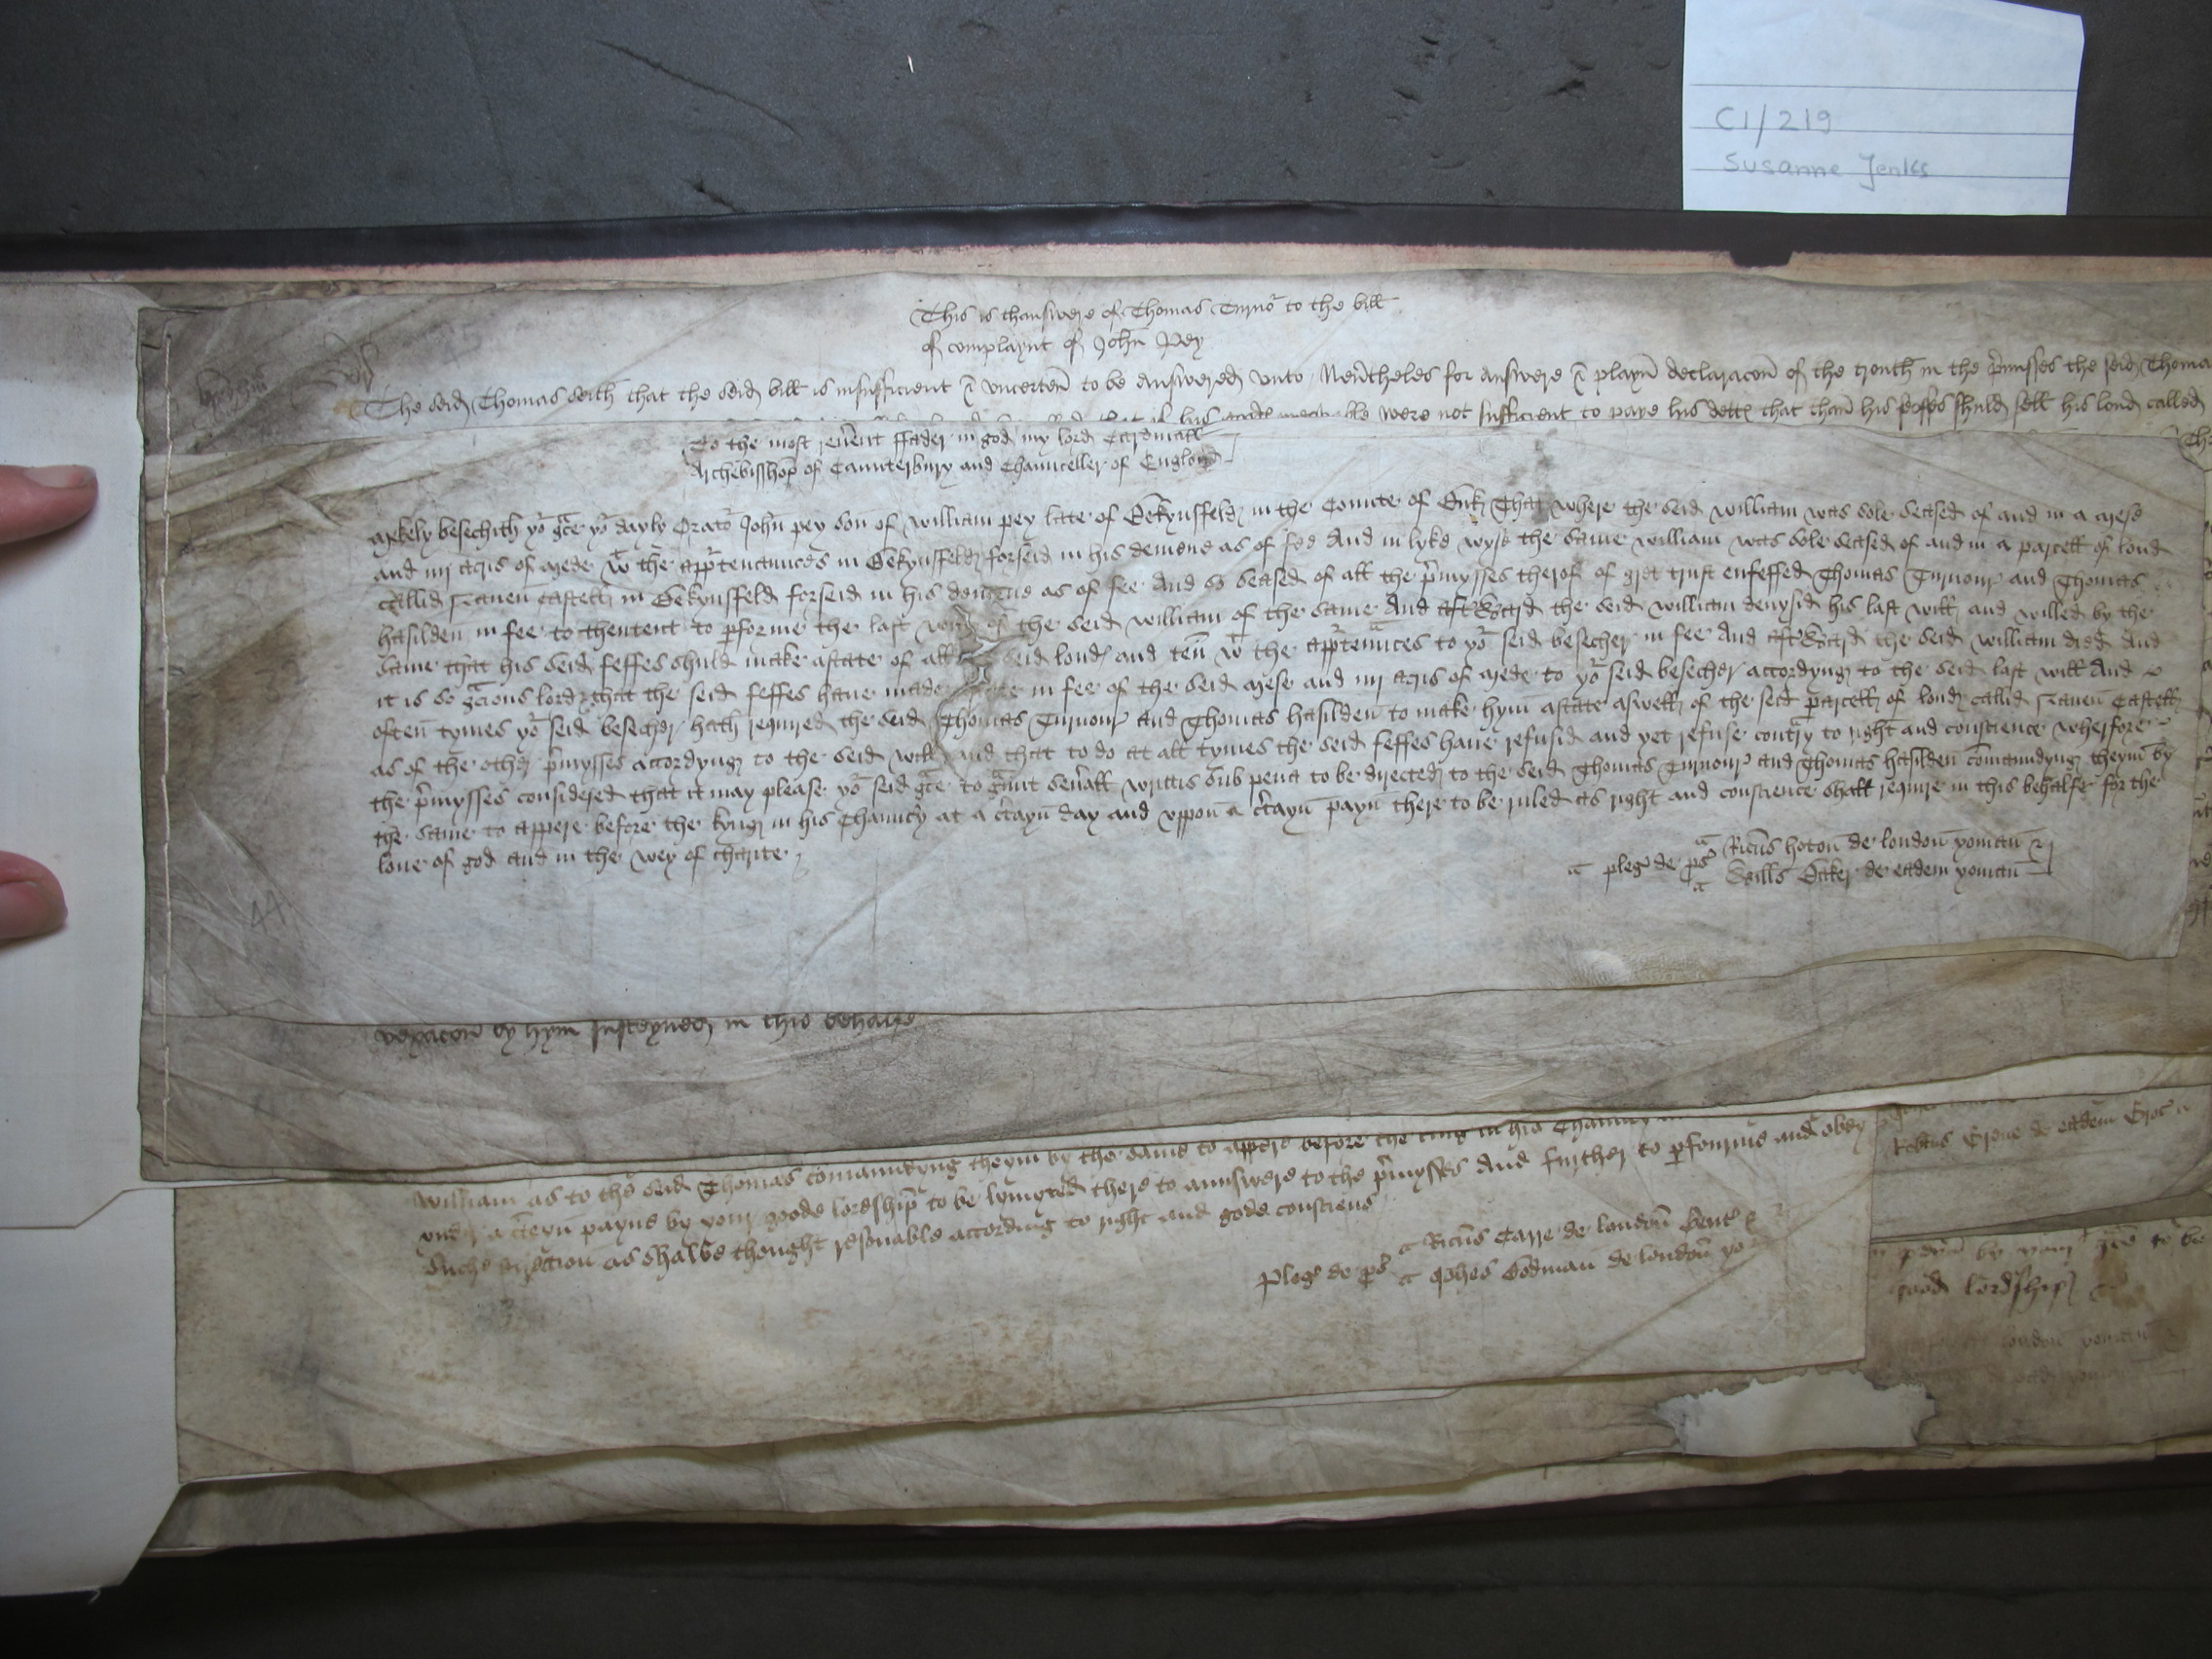 C1/219
Susanne Jenks
This is thanswere of Thomas Turnor to the bill
of complaynt of John Pey
The seid Thomas seith that the seid bill is insufficient & uncerten to be answered unto Nevtheles for answere & playn declaracon of the trouth in the pmisses the seid Thoma
were not sufficient to paye his dette that than his feoffes shuld sell his lond called
To the most revent ffader in god my lord Cardinall
Archebisshop of Caunterbury and Chaunceller of Englond
Mekely besechith yor gce yor dayly Orator John pey son of William pey late of Bekynsfeld in the Counte of Buk That where the seid William was sole seased of and in a mese
and iiij acris of mede wt the apprtenaunces in Bekynsfeld forseid in his demene as of fee And in lyke wyse the same William was sole seased of and in a parcell of lond
callid Castell in Bekynsfeld forseid in his demene as of fee And so seased of all the pmysses therof of gret trust enfeffed Thomas Turnour and Thomas
hasilden in fee to thentent to pforme the last will of the seid William of the same And aftrward the seid William devysid his last will and willed by the
same that his seid feffes shuld make astate of all seid lond and ten wt the apprtenaunces to yor seid besecher in fee And aftrward the seid William died And
it is so gcious lord that the seid feffes have made in fee of the seid mese and iiij acris of mede to yor seid besecher accordyng to the seid last will And
often tymes yor seid besecher hath required the seid Thomas Turnour and Thomas hasilden to make hym astate aswell of the seid parcell of lond callid Castell
as of the other pmysses accordyng to the seid will and that to do at all tymes the seid feffes have refusid and yet refuse contry to right and conscience Wherfore
the pmysses considered that it may please yor seid gce to gunt sevall writtis sub pena to be directed to the seid Thomas Turnour and Thomas hasilden comaundyng theym by
the same to appere before the kyng in his Chauncy at a ctayn day and uppon a ctayn payn there to be ruled as right and conscience shall require in this behalfe for the
love of god and in the wey of charite
pleg de ps Ricus hoton de london yoman
Wills Baker de eadem yoman
44
vexacon by hym susteyned in this behalfe
William as to the seid Thomas comaundyng theym by the same to appere before the king in his Chauncy
under a cteyn payne by your goode lordship to be lymyted there to aunswere to the pmysses And further to pfourme and obey
suche direction as shalbe thought resonable according to right and gode consciens
Pleg de ps Ricus Carre de london Gent
Johes Godman de london yo
Robtus de eadem
by your gce to be
good lordship
london yoman